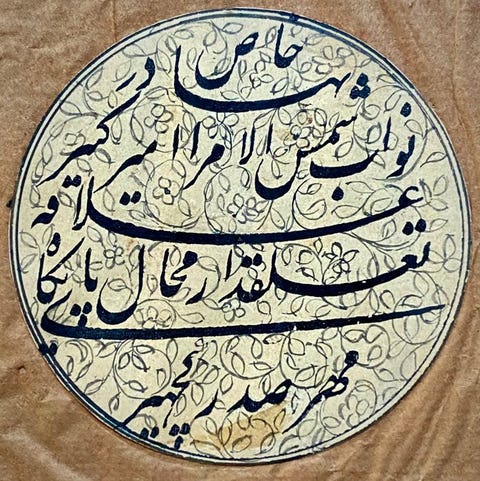 خاص
بہادر
نواب شمس الامرا امیر کبیر
علاقہ
تعلقدار محال پایگاہ
مہر صدر کچہری